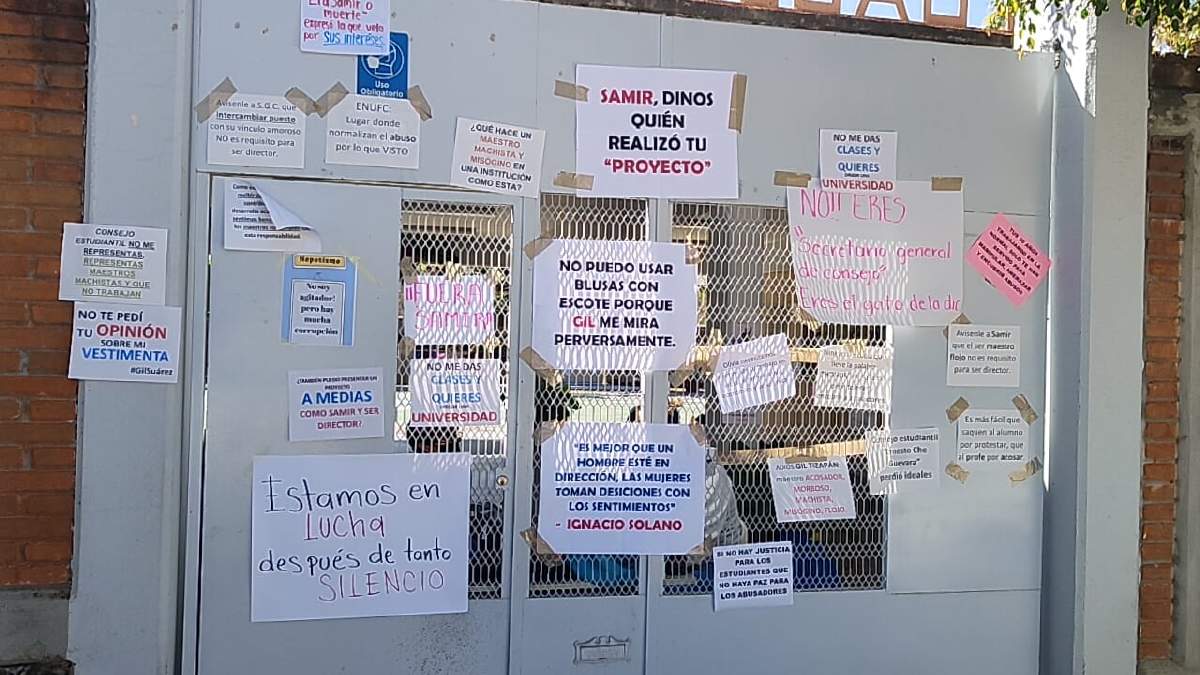 muerte"
expresó la que vela
por sus intereses
Uso
Obligatorio
Avisenle a S.G.C. que
intercambiar puesto
con su vinculo amoroso
NO es requisito para
ser director.
ENUFC:
Lugar donde
normalizan el abuso
por lo que VISTO
¿QUÉ HACE UN
MAESTRO
MACHISTA Y
MISÓGINO EN
UNA INSTITUCIÓN
COMO ESTA?
SAMIR, DINOS
QUIÉN
REALIZÓ TU
"PROYECTO"
NO ME DAS
CLASES Y
QUIERES
UNIVERSIDAD
NO!! ERES
"Secretario general
de consejo"
Eres el gato de la dir
esta responsabilidad.
CONSEJO
ESTUDIANTIL NO ME
REPRESENTAS,
REPRESENTAS
MAESTROS
MACHISTAS Y QUE
NO TRABAJAN
NO TE PEDÍ
TU OPINIÓN
SOBRE MI
VESTIMENTA
#GilSuárez
Nepotismo
No soy
agitador!
pero hay
mucha
corrupción
¡¡FUERA!!
SAMIRA
NO PUEDO USAR
BLUSAS CON
ESCOTE PORQUE
GIL ME MIRA
PERVERSAMENTE.
¿TAMBIÉN PUEDO PRESENTAR UN
PROYECTO
A MEDIAS
COMO SAMIR Y SER
DIRECTOR?
NO ME DAS
CLASES Y
QUIERES
UNIVERSIDAD
Avisenle a Samir
que el ser maestro
flojo no es requisito
para ser director.
Es más fácil que
saquen al alumno
por protestar, que
al profe por acosar.
Consejo estudiantil
"Ernesto Che
Guevara"
perdió ideales
ADIOS GIL TIZAPÁN
maestro ACOSADOR,
MORBOSO,
MACHISTA,
MISÓGINO, FLOJO
"ES MEJOR QUE UN
HOMBRE ESTÉ EN
DIRECCIÓN, LAS MUJERES
TOMAN DESICIONES CON
LOS SENTIMIENTOS"
- IGNACIO SOLANO
Estamos en
LUCHA
después de tanto
SILENCIO
SI NO HAY JUSTICIA
PARA LOS
ESTUDIANTES QUE
NO HAYA PAZ PARA
LOS ABUSADORES